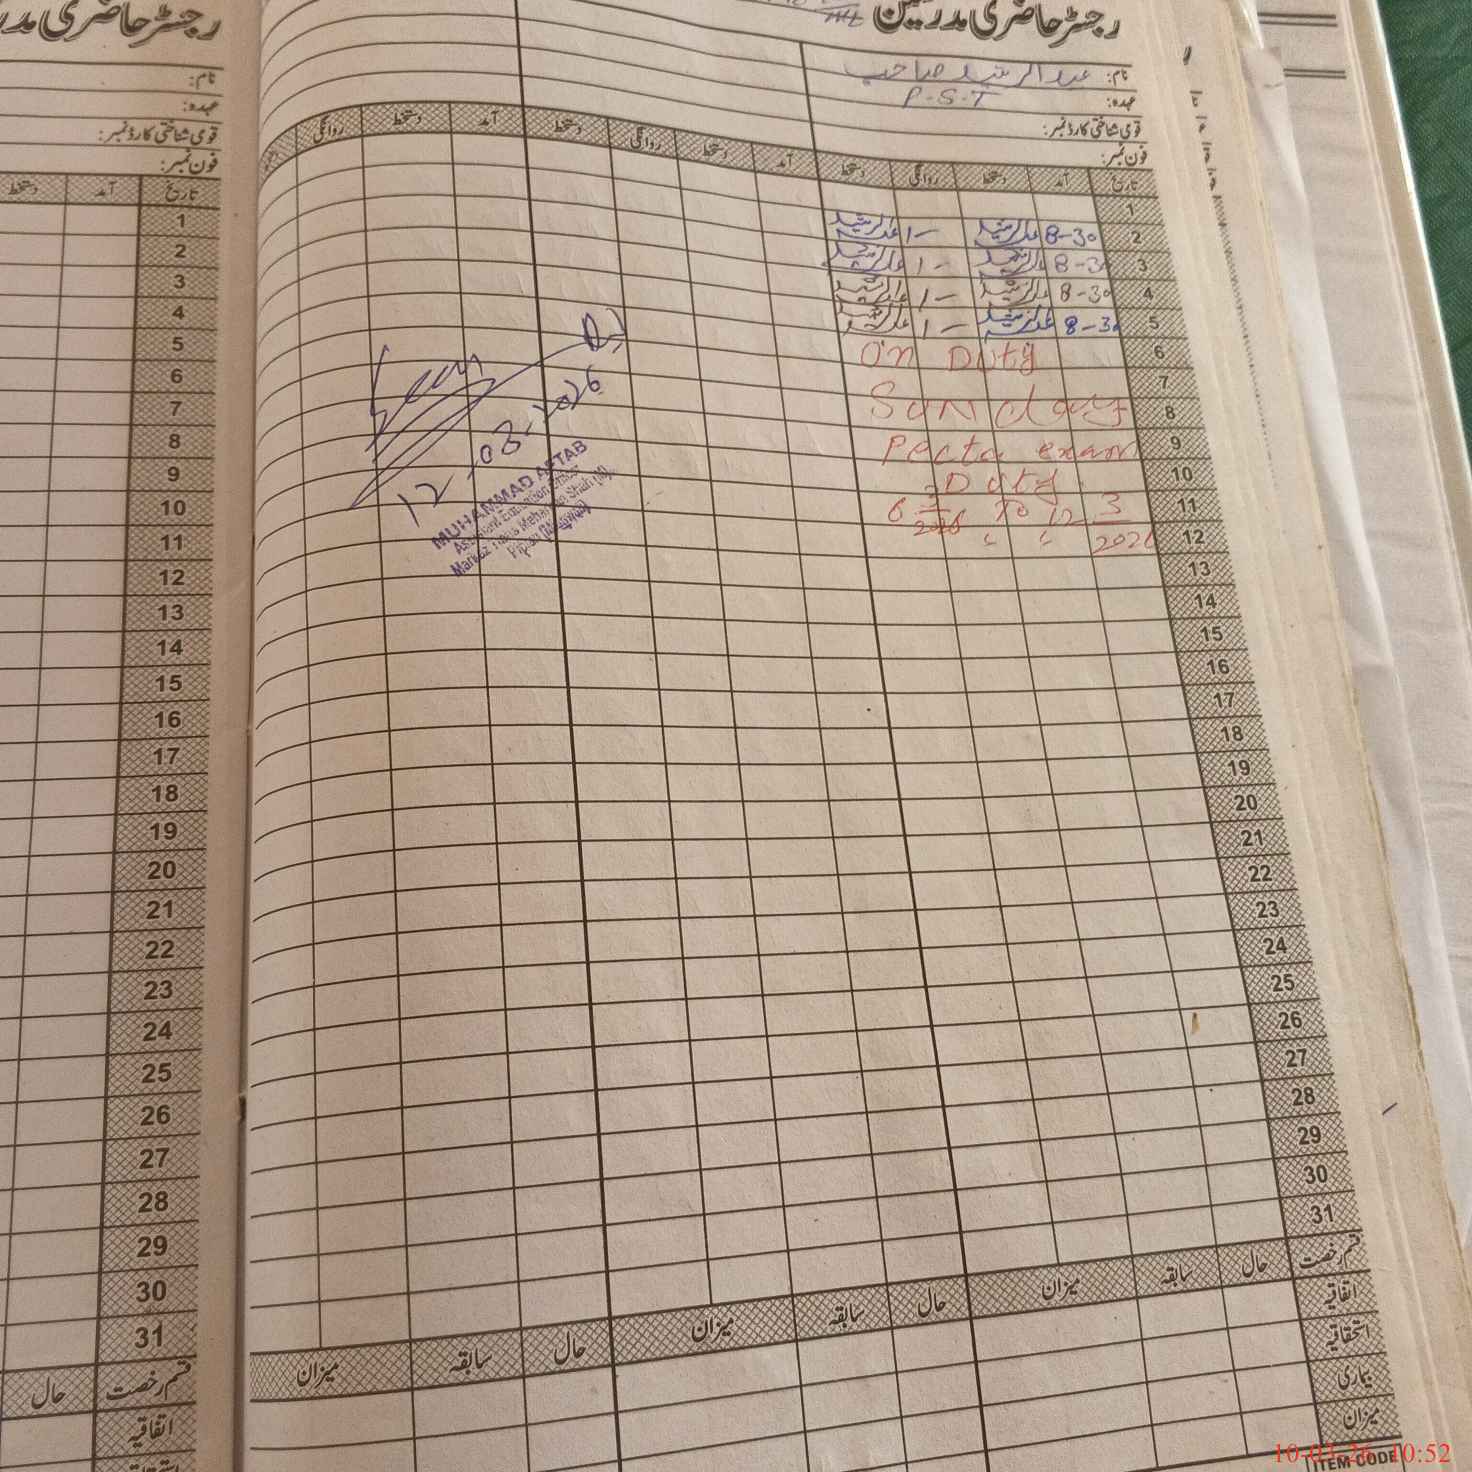 رجسٹر حاضری مدرسین
نام: عبدالرشید صاحب
عہدہ: P.S.T
قومی شناختی کارڈ نمبر:
فون نمبر:
تاریخ آمد دستخط روانگی دستخط آمد دستخط روانگی دستخط آمد دستخط روانگی
1
2 8-30 عبدالرشید 1- عبدالرشید
3 8-30 عبدالرشید 1- عبدالرشید
4 8-30 عبدالرشید 1- عبدالرشید
5 8-30 عبدالرشید 1- عبدالرشید
6 On Duty
7
8 Sunday
9 Pecta exam
10 Duty
11 6 3/2026 To 12 3/2026
12
13
14
15
16
17
18
19
20
21
22
23
24
25
26
27
28
29
30
31
قسم رخصت حال سابقہ میزان حال سابقہ میزان حال سابقہ میزان
اتفاقیہ
استحقاقیہ
بیماری
میزان
ITEM CODE
12-03-2026
MUHAMMAD AFTAB
Assistant Education Officer
رجسٹر حاضری مدر
نام:
عہدہ:
قومی شناختی کارڈ نمبر:
فون نمبر:
تاریخ آمد دستخط
1
2
3
4
5
6
7
8
9
10
11
12
13
14
15
16
17
18
19
20
21
22
23
24
25
26
27
28
29
30
31
قسم رخصت حال
اتفاقیہ
10:52